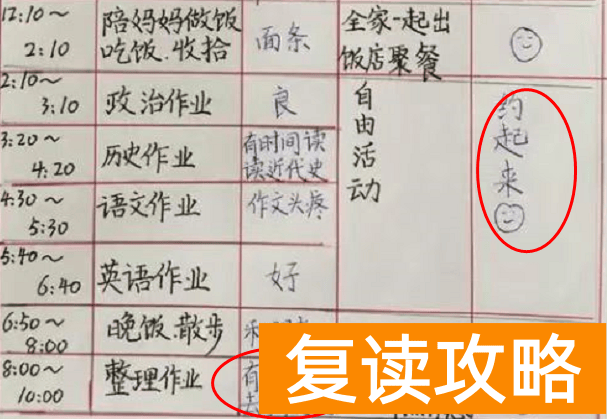 12:10~
2:10
陪妈妈做饭
吃饭.收拾
面条
全家一起出
饭店聚餐
2:10~
3:10
政治作业
良
自由活动
约起来
3:20~
4:20
历史作业
有时间读
读近代史
4:30~
5:30
语文作业
作文头疼
5:40~
6:40
英语作业
好
6:50~
8:00
晚饭.散步
8:00~
10:00
整理作业
有
复读攻略